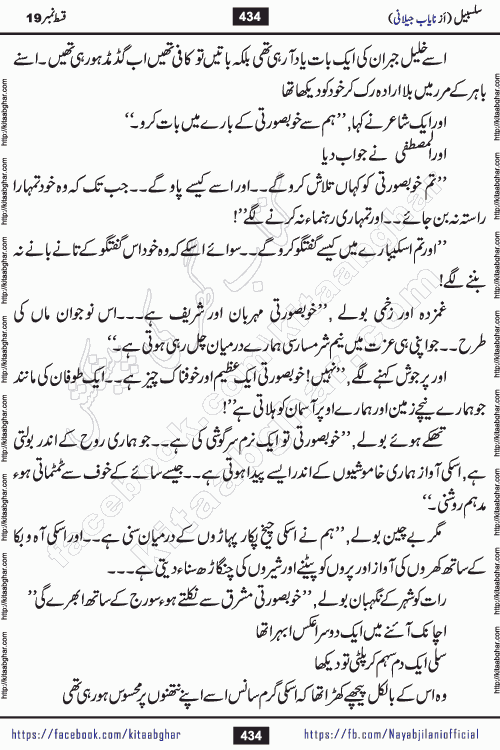 سلسبیل (از نایاب جیلانی) 434 قسط نمبر 19
اسے خلیل جبران کی ایک بات یاد آ رہی تھی بلکہ باتیں تو کافی تھیں اب گڈمڈ ہو رہی تھیں۔ اسنے
باہر کے مرر میں بلا ارادہ رک کر خود کو دیکھا تھا
اور ایک شاعر نے کہا,’’ہم سے خوبصورتی کے بارے میں بات کرو۔‘‘
اور المصطفی نے جواب دیا
’’تم خوبصورتی کو کہاں تلاش کرو گے۔۔اور اسے کیسے پاو گے۔۔ جب تک کہ وہ خود تمہارا
راستہ نہ بن جائے۔۔اور تمہاری رہنماء نہ کرنے لگے‘‘!
’’اور تم اسکے بارے میں کیسے گفتگو کرو گے۔۔سوائے اسکے کہ وہ خود اس گفتگو کے تانے بانے نہ
بننے لگے!
غمزدہ اور زخمی بولے ,’’خوبصورتی مہربان اور شریف ہے۔۔۔اس نوجوان ماں کی
طرح۔۔جو اپنی ہی عزت میں نیم شرمسار سی ہمارے درمیان چل رہی ہوتی ہے۔‘‘
اور پر جوش کہنے لگے,’’نہیں! خوبصورتی ایک عظیم اور خوفناک چیز ہے۔۔ایک طوفان کی مانند
جو ہمارے نیچے زمین اور ہمارے اوپر آسمان کو ہلاتی ہے‘‘!
تھکے ہوئے بولے,’’خوبصورتی تو ایک نرم سرگوشی کی ہے۔۔جو ہماری روح کے اندر بولتی
ہے,اسکی آواز ہماری خاموشیوں کے اندر ایسے پیدا ہوتی ہے۔۔جیسے سائے کے خوف سے ٹمٹماتی ہوء
مدہم روشنی۔‘‘
مگر بے چین بولے,’’ہم نے اسکی چیخ پکار پہاڑوں کے درمیان سنی ہے۔۔اور اسکی آہ و بکا
کے ساتھ کھروں کی آواز اور پروں کو پیٹنے اور شیروں کی چنگاڑھ سناء دیتی ہے۔۔۔
رات کو شہر کے نگہبان بولے,’’خوبصورتی مشرق سے نکلتے ہوء سورج کے ساتھ ابھرے گی‘‘
اچانک آئنے میں ایک دوسرا عکس ابھرا تھا
سلی ایک دم سہم کر پلٹی تو دیکھا
وہ اس کے بالکل پیچھے کھڑا تھا کہ اسکی گرم سانس اسے اپنے نتھنوں پر محسوس ہو رہی تھی
https://facebook.com/kitaabghar 434 https://fb.com/Nayabjilaniofficial
http://kitaabghar.com
facebook.com/kitaabghar
kitaabghar.com